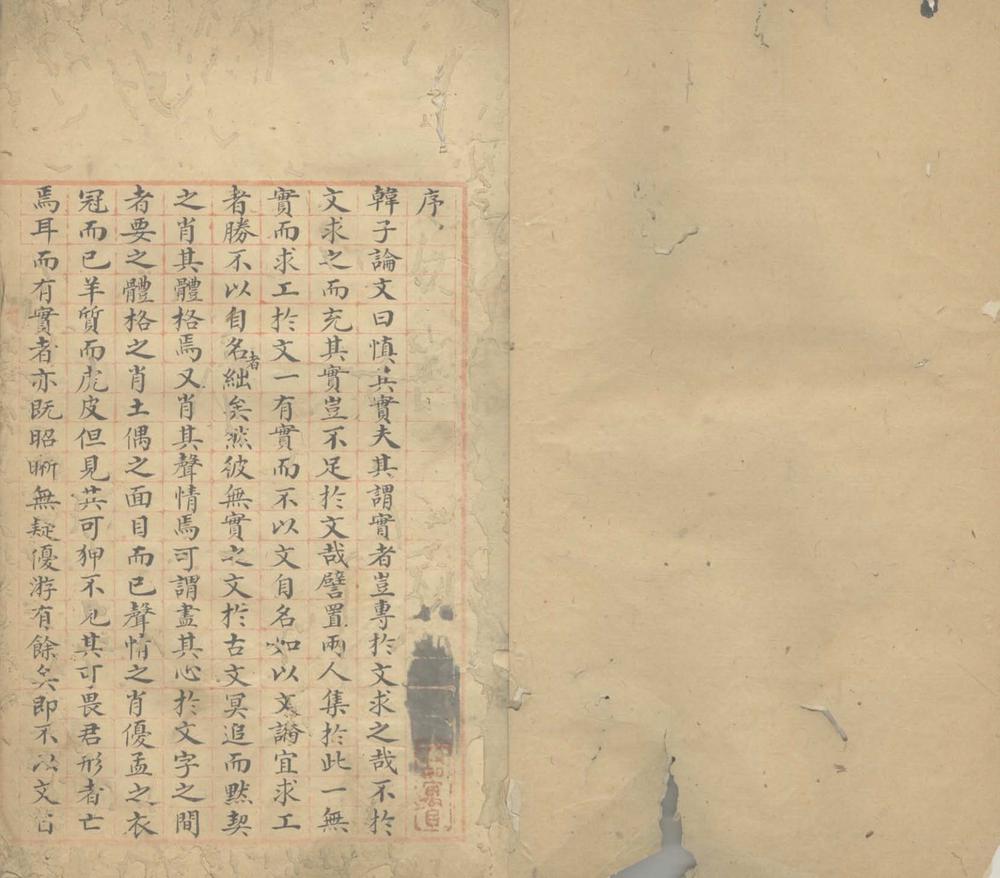 序
韓子論文曰慎其實夫其謂實者豈專扵文求之哉不扵
文求之而充其實豈不足扵文哉譬置兩人集扵此一無
實而求工扵文一有實而不以文自名如以文論宜求工
者勝不以自名者絀矣然彼無實之文扵古文冥追而黙契
之肖其體格焉又肖其聲情焉可謂盡其心扵文字之間
者要之體格之肖土偶之面目而已聲情之肖優孟之衣
冠而已羊質而虎皮但見其可狎不見其可畏君形者亡
焉耳而有實者亦既昭晰無疑優游有餘矣即不以文